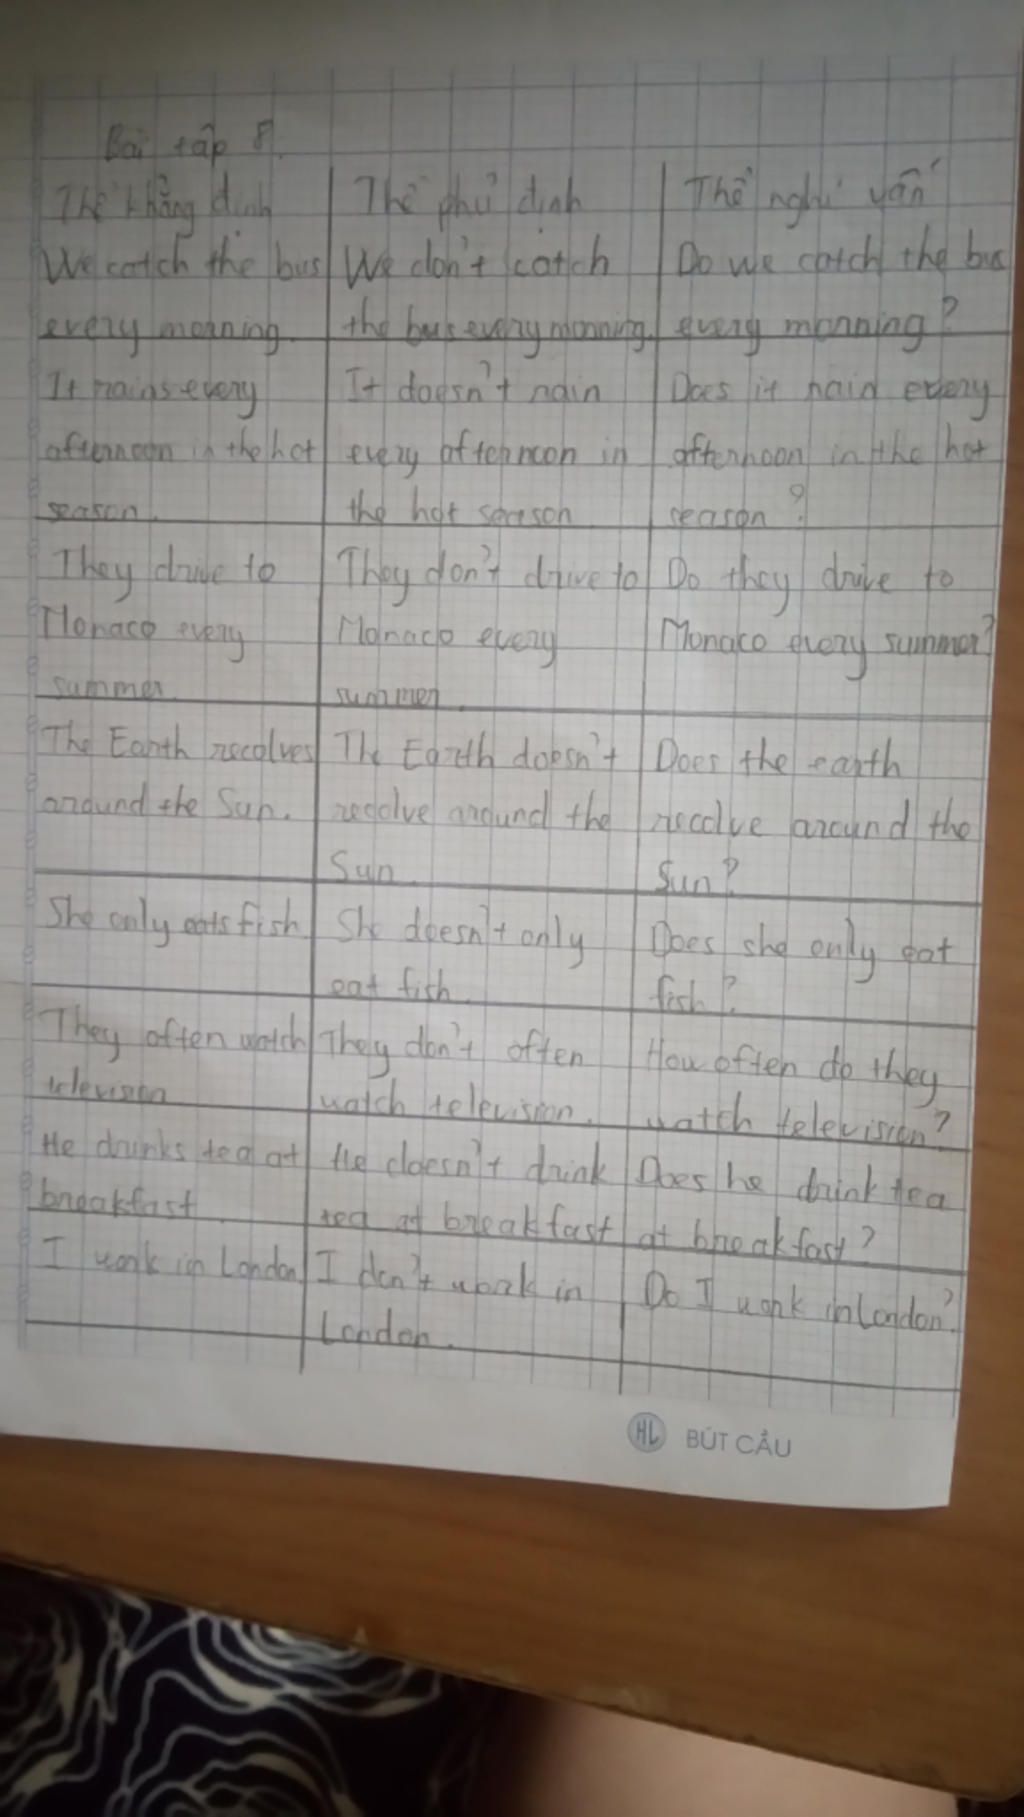 Bài tập 8.
Thể khẳng định
We catch the bus
every morning.
Thể phủ định
We don't catch
the bus every morning.
Thể nghi vấn
Do we catch the bus
every morning?
It rains every
afternoon in the hot
season.
It doesn't rain
every afternoon in
the hot season
Does it rain every
afternoon in the hot
season?
They drive to
Monaco every
summer.
They don't drive to
Monaco every
summer.
Do they drive to
Monaco every summer?
The Earth
around the Sun.
The Earth doesn't
around the
Sun.
Does the earth
around the
Sun?
She only eats fish
She doesn't only
eat fish.
Does she only eat
fish?
They often watch
television
They don't often
watch television.
How often do they
watch television?
He drinks tea at
breakfast.
He doesn't drink
tea at breakfast
Does he drink tea
at breakfast?
I work in London
I don't work in
London.
Do I work in London?
HL BÚT CẦU